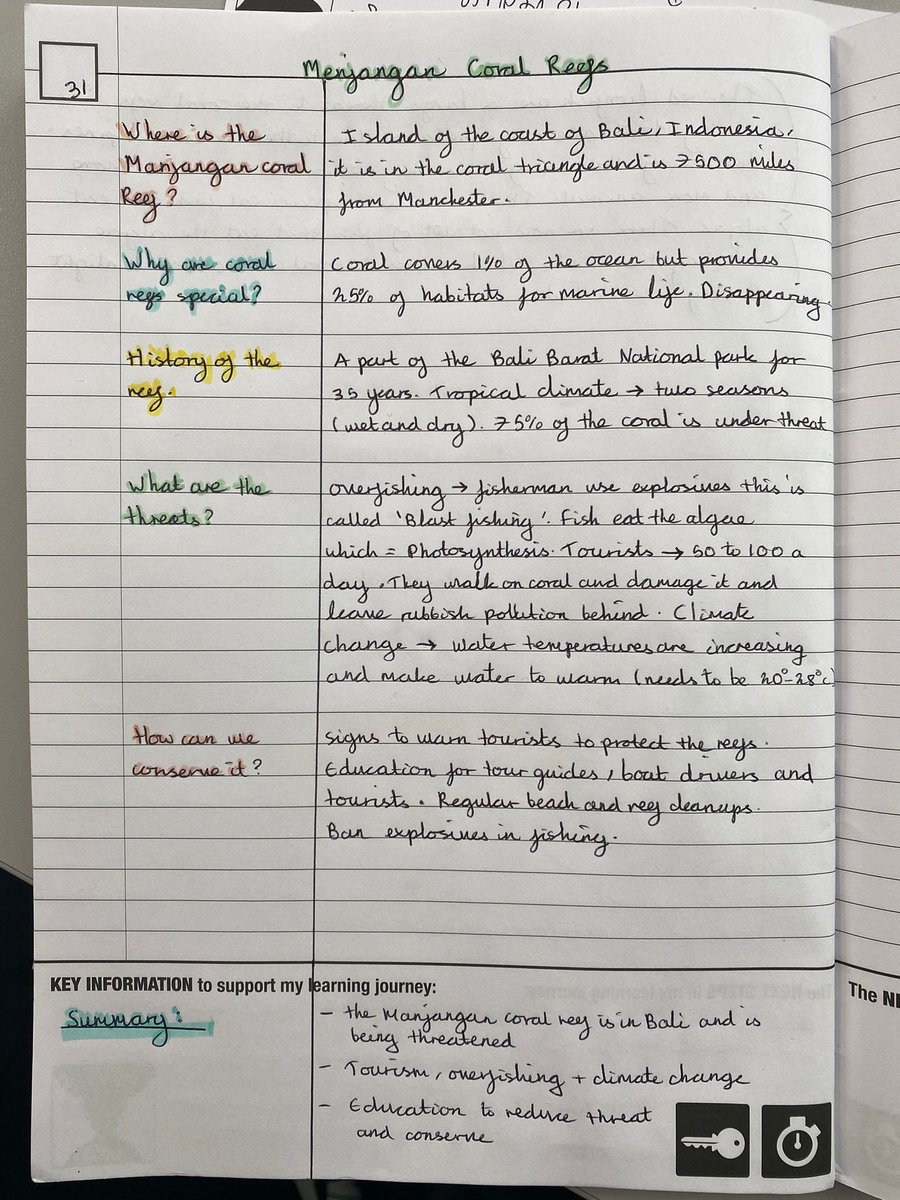 31
Menjangan Coral Reefs
Where is the
Manjangan coral
Reef?
Island of the coast of Bali, Indonesia,
it is in the coral triangle and is 7500 miles
from Manchester.
Why are coral
refs special?
Coral covers 1% of the ocean but provides
25% of habitats for marine life. Disappearing.
History of the
reef.
A part of the Bali Barat National park for
35 years. Tropical climate → two seasons
(wet and dry). 75% of the coral is under threat
What are the
threats?
overfishing → fisherman use explosives this is
called 'Blast fishing'. Fish eat the algae
which = Photosynthesis. Tourists → 50 to 100 a
day. They walk on coral and damage it and
leave rubbish pollution behind. Climate
change → water temperatures are increasing
and make water to warm (needs to be 20°-28°c)
How can we
conserve it?
signs to warn tourists to protect the reefs.
Education for tour guides, boat drivers and
tourists. Regular beach and reef cleanups.
Ban explosives in fishing.
KEY INFORMATION to support my learning journey:
Summary:
- the Manjangan coral reef is in Bali and is
being threatened
- Tourism, overfishing + climate change
- Education to reduce threat
and conserve
The